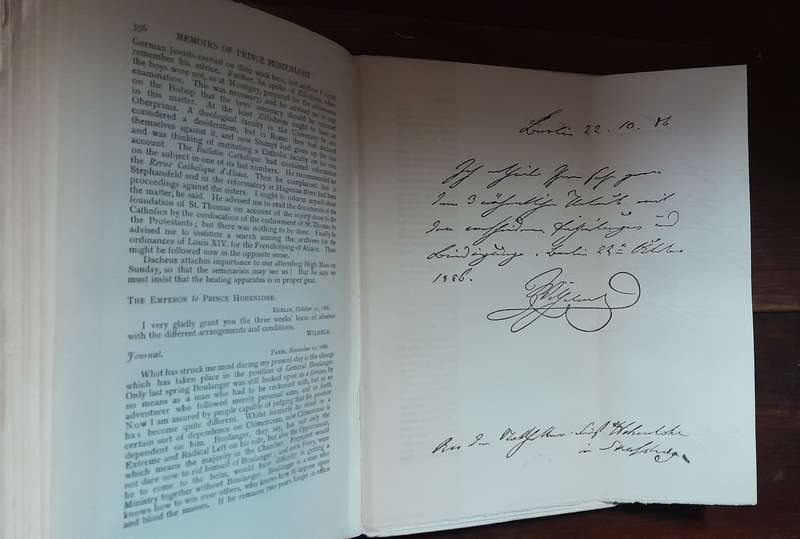 356
MEMOIRS OF PRINCE HOHENLOHE
German Jesuits carried on their work here, but
remember his advice. Further, he spoke of Zillisheim, where
the boys were not, as at Montigny, prepared for the
examination. This was necessary, and he advised me to urge
on the Bishop that the boys' seminary should be
in this matter. At the least Zillisheim ought to have an
Oberprima. A theological faculty in the University he also
considered a desideratum, but in Rome they had declared
themselves against it, and now Stumpf had given up the idea
and was thinking of instituting a Catholic faculty on his own
account. The Bulletin Catholique had contained information
on the subject in one of its last numbers. He recommended me
the Revue Catholique d'Alsace. Then he complained that in
Stephansfeld and in the reformatory at Hagenau there had been
proceedings against the sisters. I ought to inform myself about
the matter, he said. He advised me to read the documents of the
foundation of St. Thomas on account of the injury done to the
Catholics by the confiscation of the endowment of St. Thomas by
the Protestants; but there was nothing to be done. Finally he
advised me to institute a search among the archives for the
ordinances of Louis XIV. for the Frenchifying of Alsace. These
might be followed now in the opposite sense.
Dacheux attaches importance to our attending High Mass on
Sunday, so that the seminarists may see us! But he says we
must insist that the heating apparatus is in proper gear.
THE EMPEROR to PRINCE HOHENLOHE.
BERLIN, October 22, 1886.
I very gladly grant you the three weeks' leave of absence
with the different arrangements and conditions.
WILHELM.
Journal.
PARIS, November 1886.
What has struck me most during my present stay is the change
which has taken place in the position of General Boulanger.
Only last spring Boulanger was still looked upon as a farceur, by
no means as a man who had to be reckoned with, but as an
adventurer who followed merely personal aims, and so forth.
Now I am assured by people capable of judging that his position
has become quite different. Whilst formerly he stood in a
certain sort of dependence on Clémenceau, now Clémenceau is
dependent on him. Boulanger, they say, has not only the
Extreme and Radical Left on his side, but also the Opportunists,
which means the majority in the Chamber. Freycinet would
not dare now to rid himself of Boulanger; and even Ferry, were
he to come to the helm, would have difficulty in getting a
Ministry together without Boulanger. Boulanger is a man who
knows how to win over others, who knows how to impose upon
and blind the masses. If he remains two years longer in office
Berlin 22. 10. 86
Ich ertheile Ihnen sehr gern
den 3 wöchentlichen Urlaub mit
den verschiedenen Eintheilungen und
Bedingungen. Berlin 22ten Oktober
1886.
Wilhelm
An den Statthalter Fürst Hohenlohe
in Strassburg.